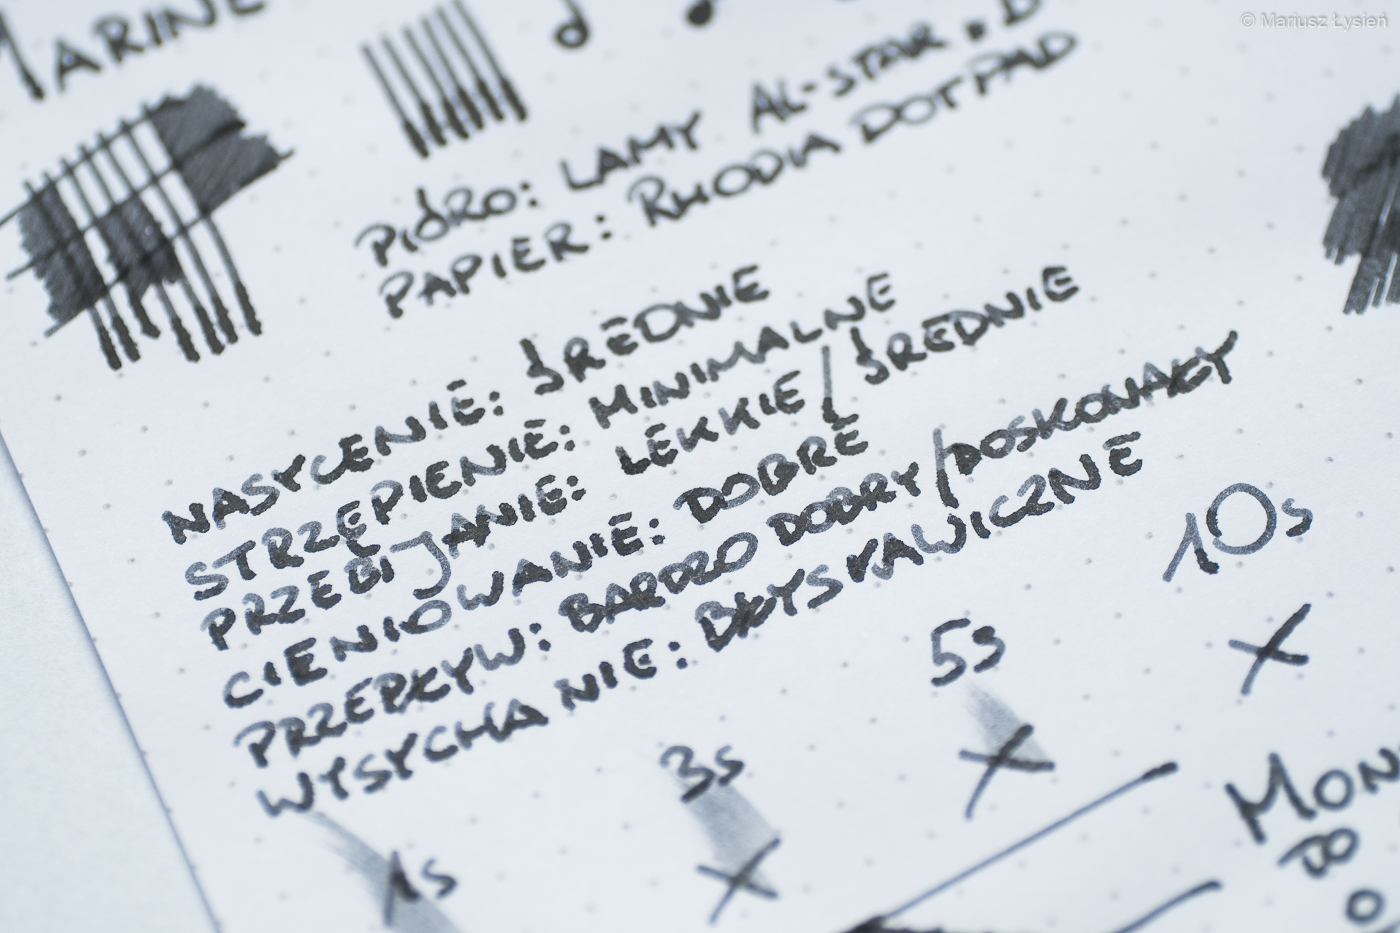 © Mariusz Łysień
MARINE
PIÓRO: LAMY AL-STAR, B
PAPIER: RHODIA DOTPAD
NASYCENIE: ŚREDNIE
STRZĘPIENIE: MINIMALNE
PRZEBIJANIE: LEKKIE/ŚREDNIE
CIENIOWANIE: DOBRE
PRZEPŁYW: BARDZO DOBRY/DOSKONAŁY
WYSYCHANIE: BŁYSKAWICZNE
1s 3s 5s 10s
MON
DO
O